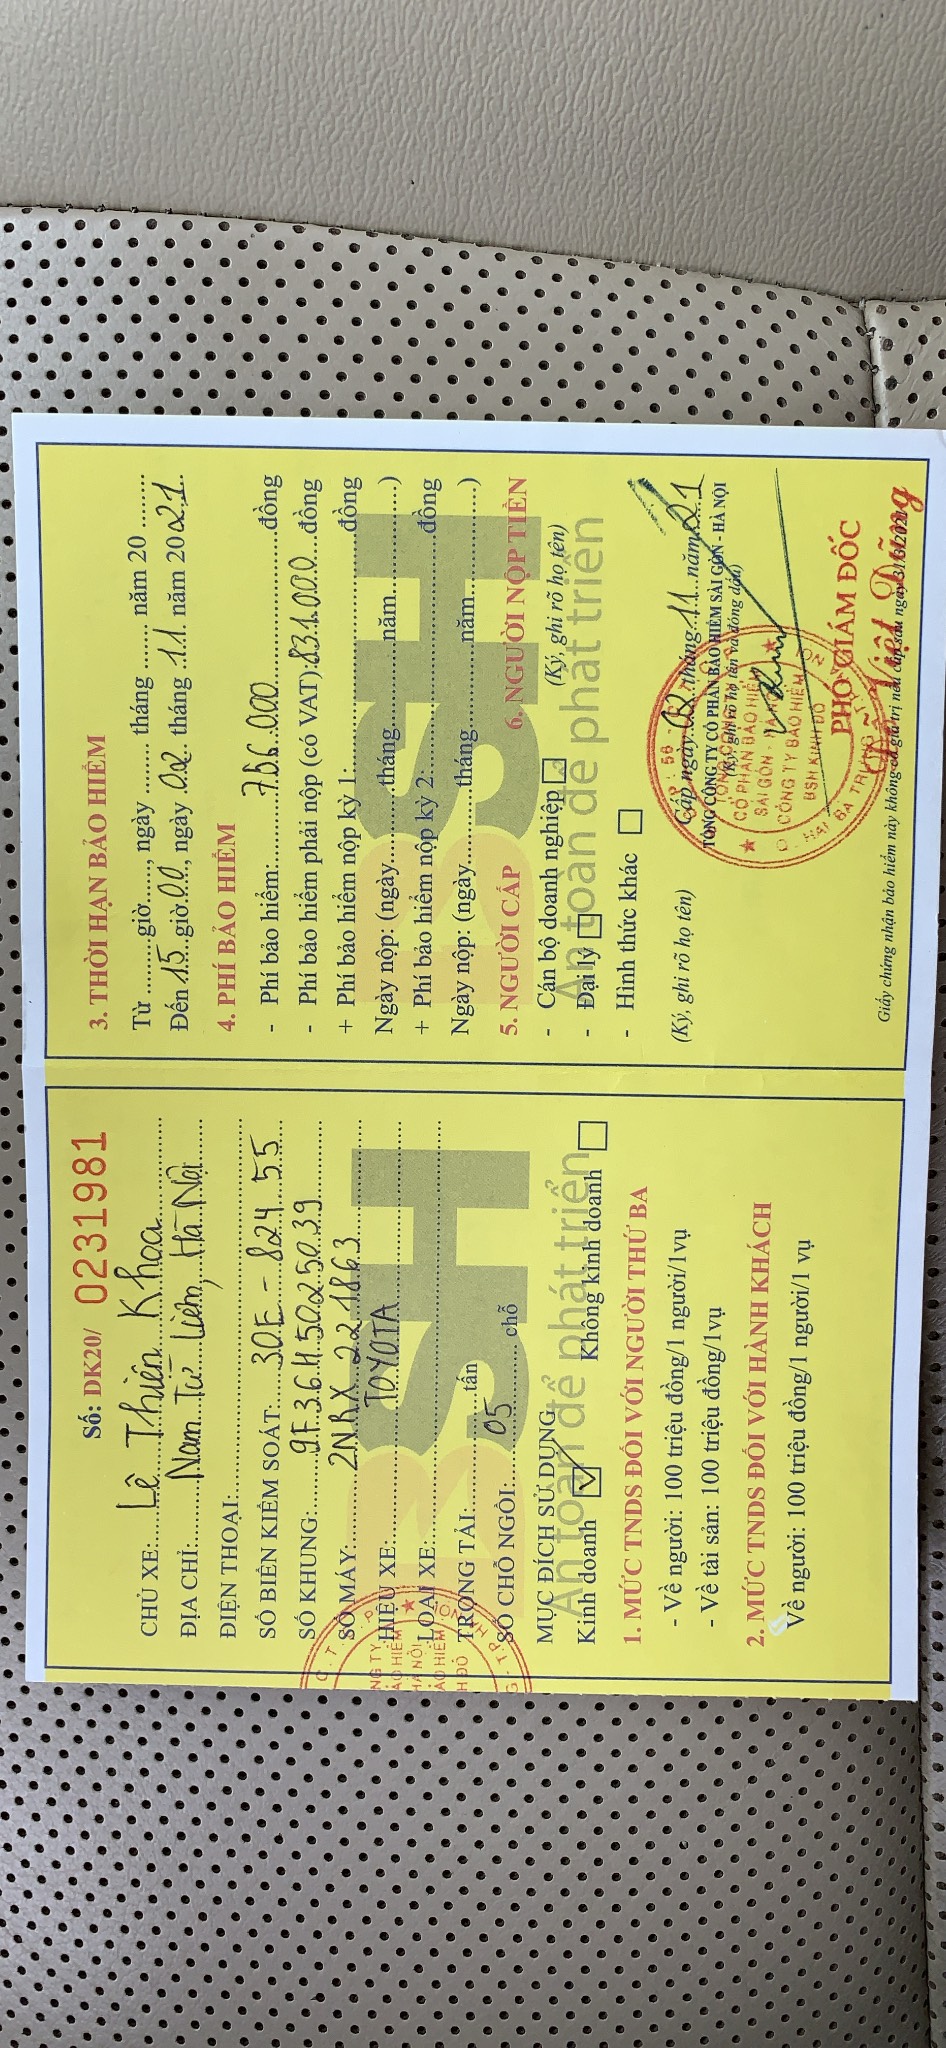 Số: DK20/ 0231981
CHỦ XE: Lê Thiên Khoa
ĐỊA CHỈ: Nam Từ Liêm, Hà Nội
ĐIỆN THOẠI:
SỐ BIỂN KIỂM SOÁT: 30E - 824 55
SỐ KHUNG: 9F36H5025039
SỐ MÁY: 2NRX 221863
HIỆU XE: TOYOTA
LOẠI XE:
TRỌNG TẢI: tấn
SỐ CHỖ NGỒI: 05 chỗ
MỤC ĐÍCH SỬ DỤNG
Kinh doanh Không kinh doanh
BSH
An toàn để phát triển
1. MỨC TNDS ĐỐI VỚI NGƯỜI THỨ BA
- Về người: 100 triệu đồng/1 người/1vụ
- Về tài sản: 100 triệu đồng/1vụ
2. MỨC TNDS ĐỐI VỚI HÀNH KHÁCH
Về người: 100 triệu đồng/1 người/1 vụ
3. THỜI HẠN BẢO HIỂM
Từ .........giờ......, ngày ........ tháng ....... năm 20 ........
Đến 15 giờ 00, ngày 02 tháng 11 năm 20 21
4. PHÍ BẢO HIỂM
- Phí bảo hiểm: 756.000 đồng
- Phí bảo hiểm phải nộp (có VAT): 831.000 đồng
+ Phí bảo hiểm nộp kỳ 1: đồng
Ngày nộp: (ngày...........tháng............năm................)
+ Phí bảo hiểm nộp kỳ 2: đồng
Ngày nộp: (ngày...........tháng............năm................)
5. NGƯỜI CẤP 6. NGƯỜI NỘP TIỀN
- Cán bộ doanh nghiệp (Ký, ghi rõ họ tên)
- Đại lý
- Hình thức khác
BSH
An toàn để phát triển
(Ký, ghi rõ họ tên) Cấp ngày 02 tháng 11 năm 21
TỔNG CÔNG TY CỔ PHẦN BẢO HIỂM SÀI GÒN - HÀ NỘI
(Ký, ghi rõ họ tên và đóng dấu)
TỔNG CÔNG TY
CỔ PHẦN BẢO HIỂM
SÀI GÒN - HÀ NỘI
CÔNG TY BẢO HIỂM
BSH KINH ĐÔ
Q. HAI BÀ TRƯNG - T.P. HÀ NỘI
PHÓ GIÁM ĐỐC
Việt Dũng
Giấy chứng nhận bảo hiểm này không có giá trị nếu cấp sau ngày 31/3/2021